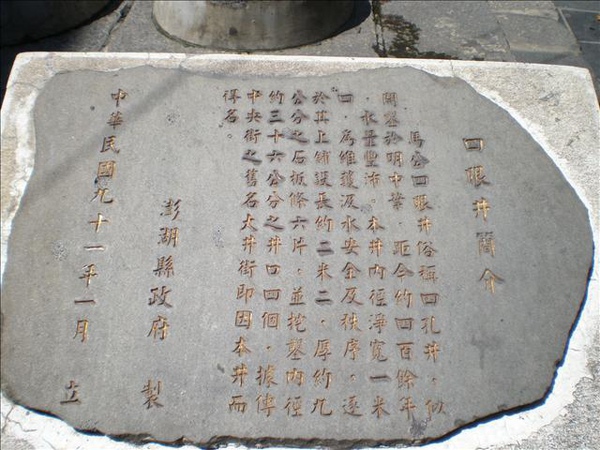 四眼井簡介
馬公四眼井俗稱四孔井，似
開鑿於明中葉，距今約四百餘年
，水量豐沛。本井內徑淨寬一米
四，為維護汲水安全及秩序，遂
於其上鋪設長約二米二，厚約九
公分之石板條六片，並挖鑿內徑
約三十六公分之井口四個，據傳
中央街之舊名大井街即因本井而
得名。
澎湖縣政府 製
中華民國九十一年一月 立